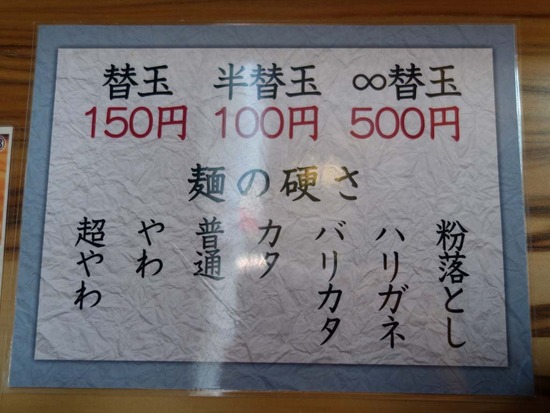 替玉 半替玉 ∞替玉
150円 100円 500円
麺の硬さ
粉落とし
ハリガネ
バリカタ
カタ
普通
やわ
超やわ